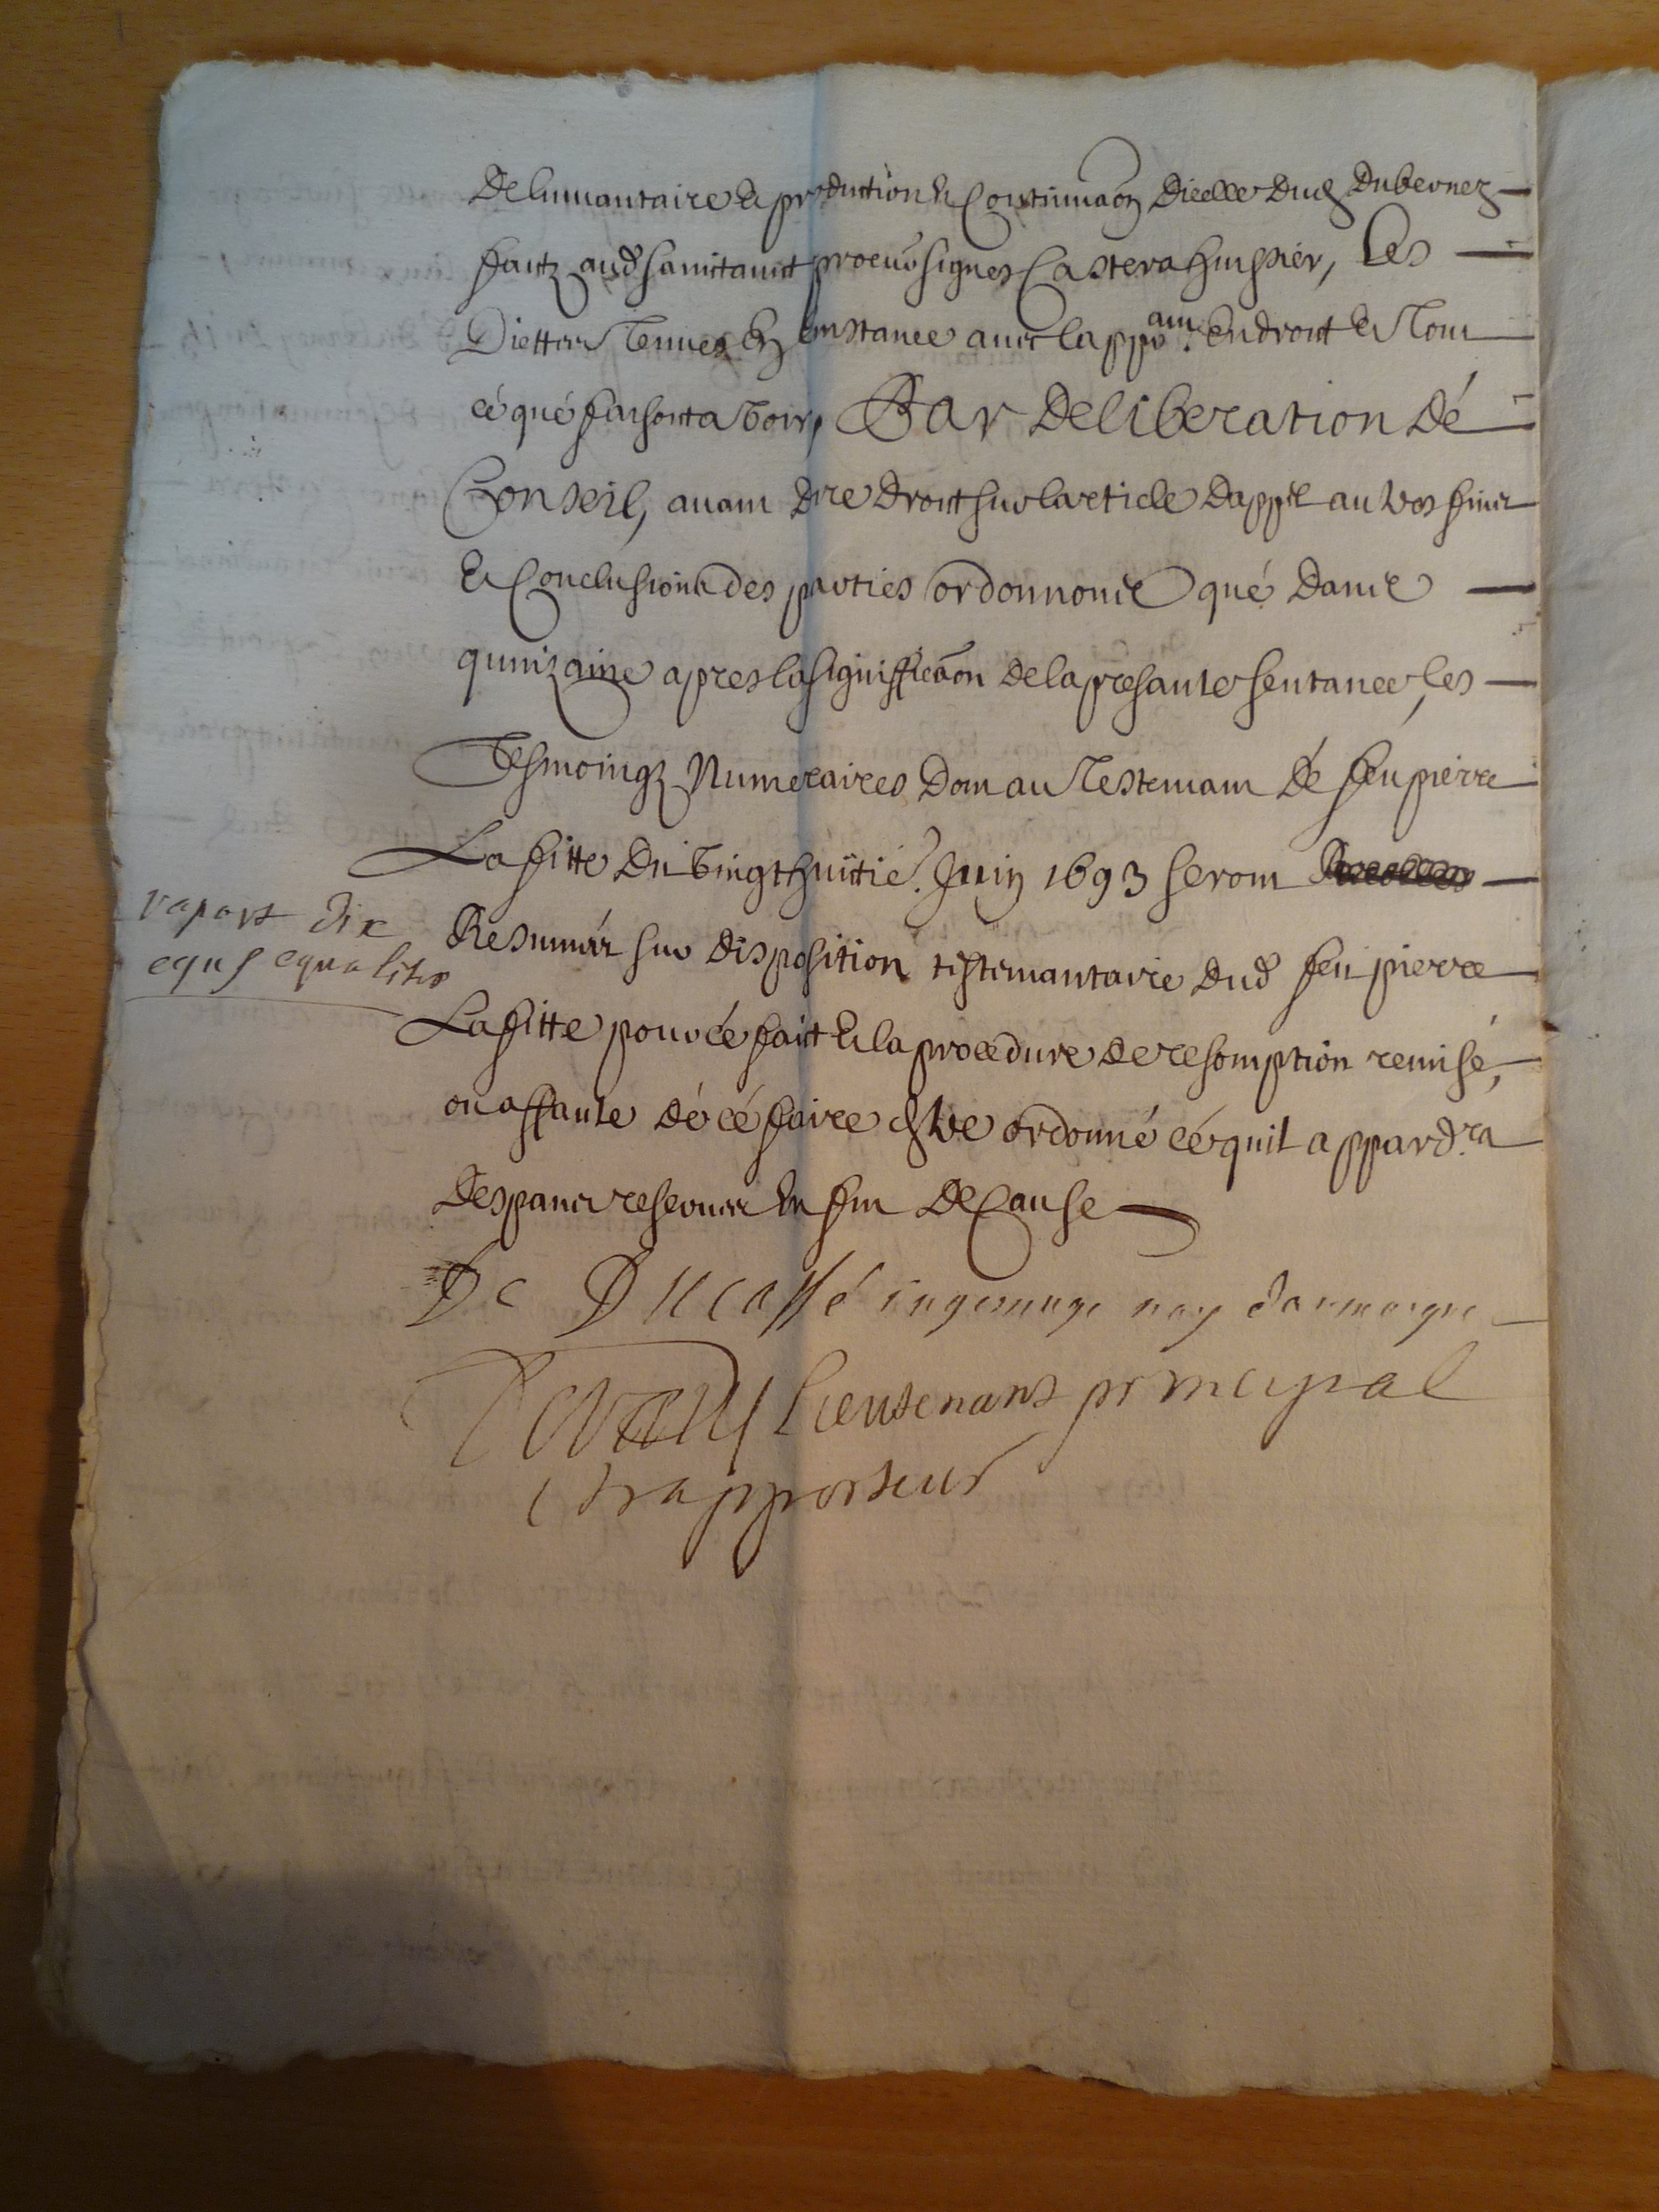 De linuantaire & production & Continuaōn Dicelle Dud Dubernez
faitz aud Sainctauict procur signes Castera huissier, Les
Diettes Tenues En Linstance auec lappō.am En droict Et Tout
cé qué faisoit a Voir, Par Deliberation Dé
Conseil, auant Dire droict sur larticle Dappel au Vos fins
Et Conclusions des parties ordonnons qué Dans
quinzaine apres la signifficaōn De la presante sentance, les
Tesmoingz Numeraires Dom au Testemant Dé feu pierre
Lafitte Du Vingt huittié. Juin 1693 seront
Resumés sur disposition testemantaire dud feu pierre
Lafitte pour cé faict Et la procedure de resomption remisé,
ou affaute dé cé faire estre ordonné cé quil appard.ra
Despans reserues En fin De Cause
raport dix
equs equalitr
De Ducassé iugemage
Lieutenant principal
et rapporteur